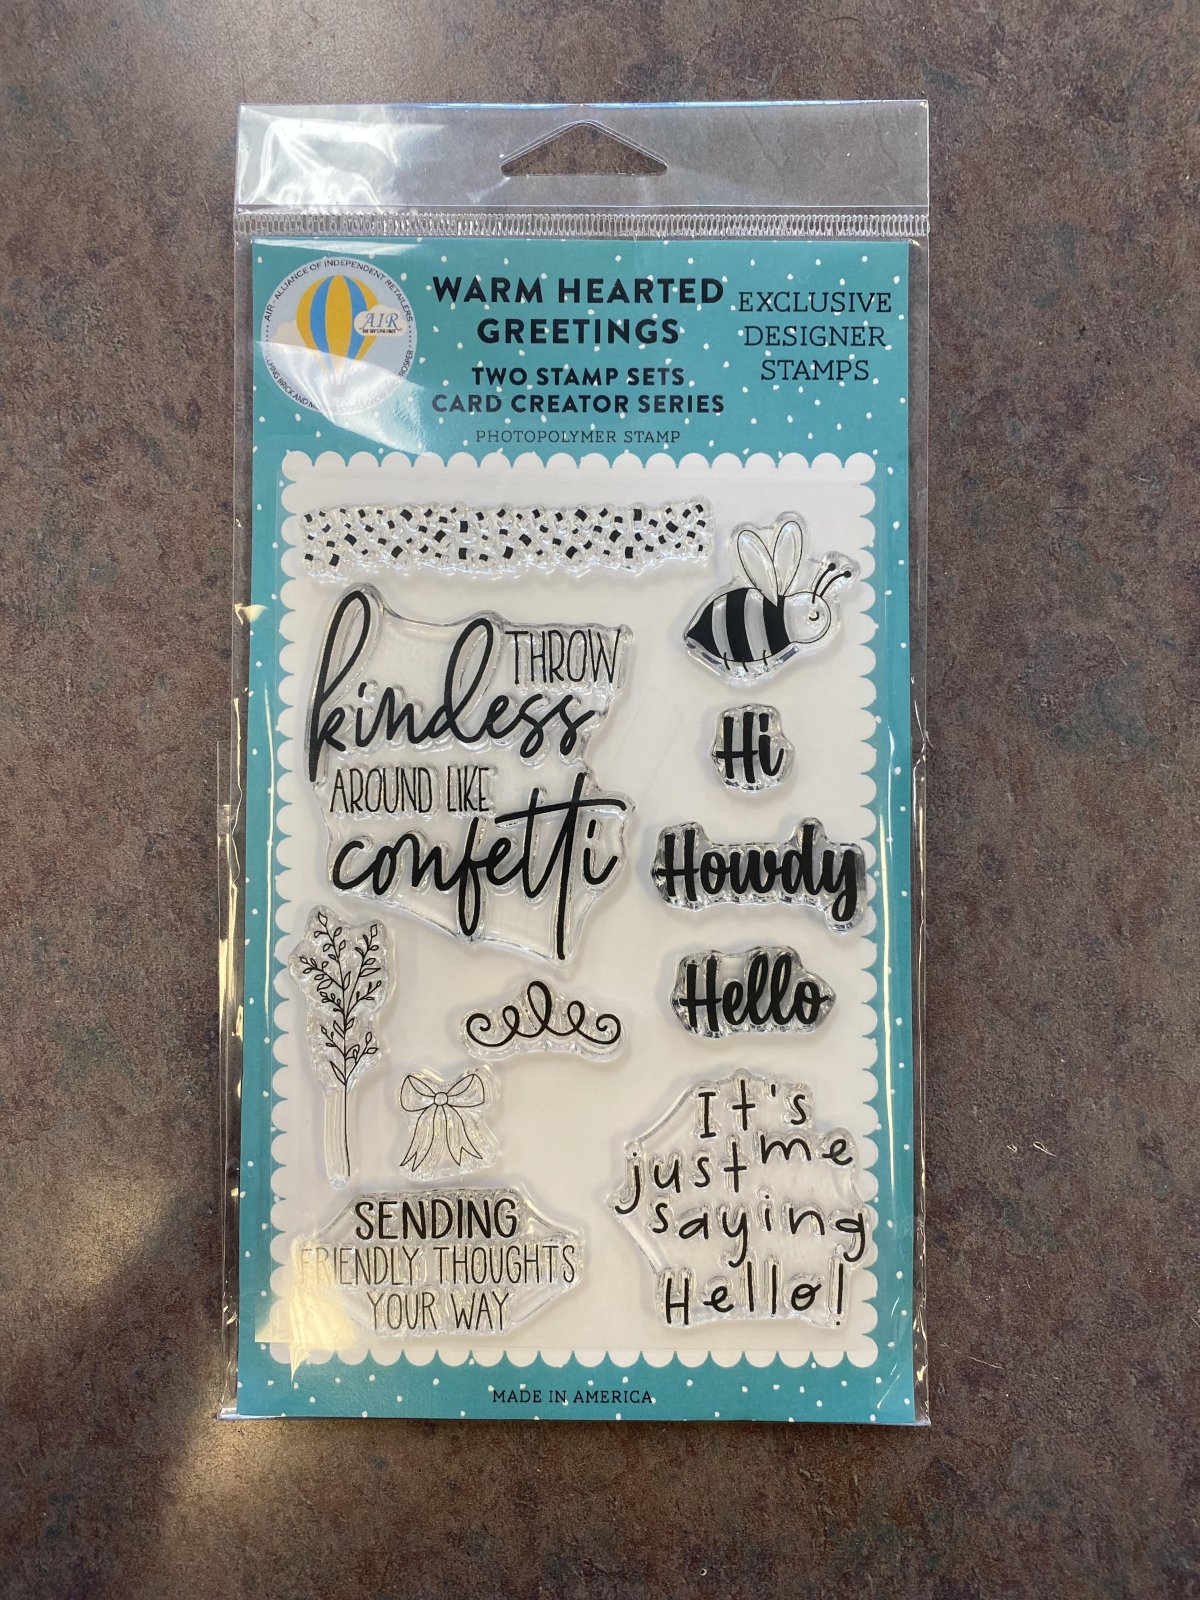 AIR - ALLIANCE OF INDEPENDENT RETAILERS
AIR
THE SKY'S THE LIMIT
WARM HEARTED
GREETINGS
TWO STAMP SETS
CARD CREATOR SERIES
PHOTOPOLYMER STAMP
EXCLUSIVE
DESIGNER
STAMPS
THROW
kindess
AROUND LIKE
confetti
Hi
Howdy
Hello
It's
just me
saying
Hello!
SENDING
FRIENDLY THOUGHTS
YOUR WAY
MADE IN AMERICA